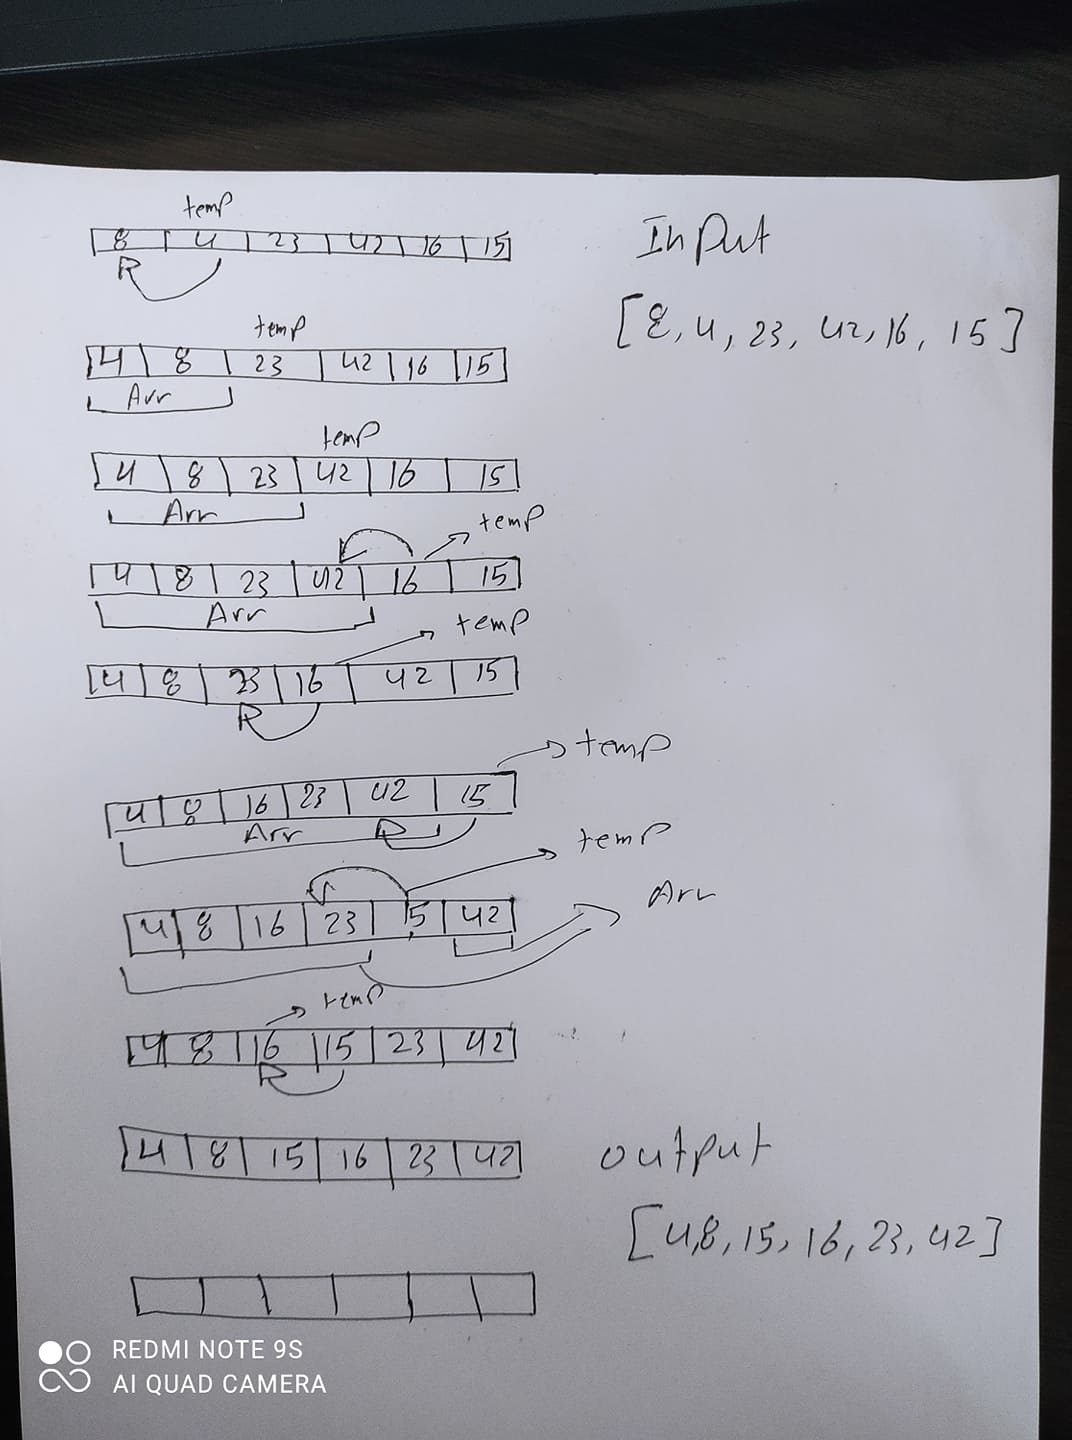 temp
8 4 23 42 16 15
Input
R
[8, 4, 23, 42, 16, 15]
temp
4 8 23 42 16 15
Arr
temp
4 8 23 42 16 15
Arr
temp
4 8 23 42 16 15
Arr
temp
4 8 23 16 42 15
R
temp
4 8 16 23 42 15
Arr R
temp
Arr
4 8 16 23 15 42
temp
4 8 16 15 23 42
R
4 8 15 16 23 42
output
[4,8, 15, 16, 23, 42]
REDMI NOTE 9S
AI QUAD CAMERA